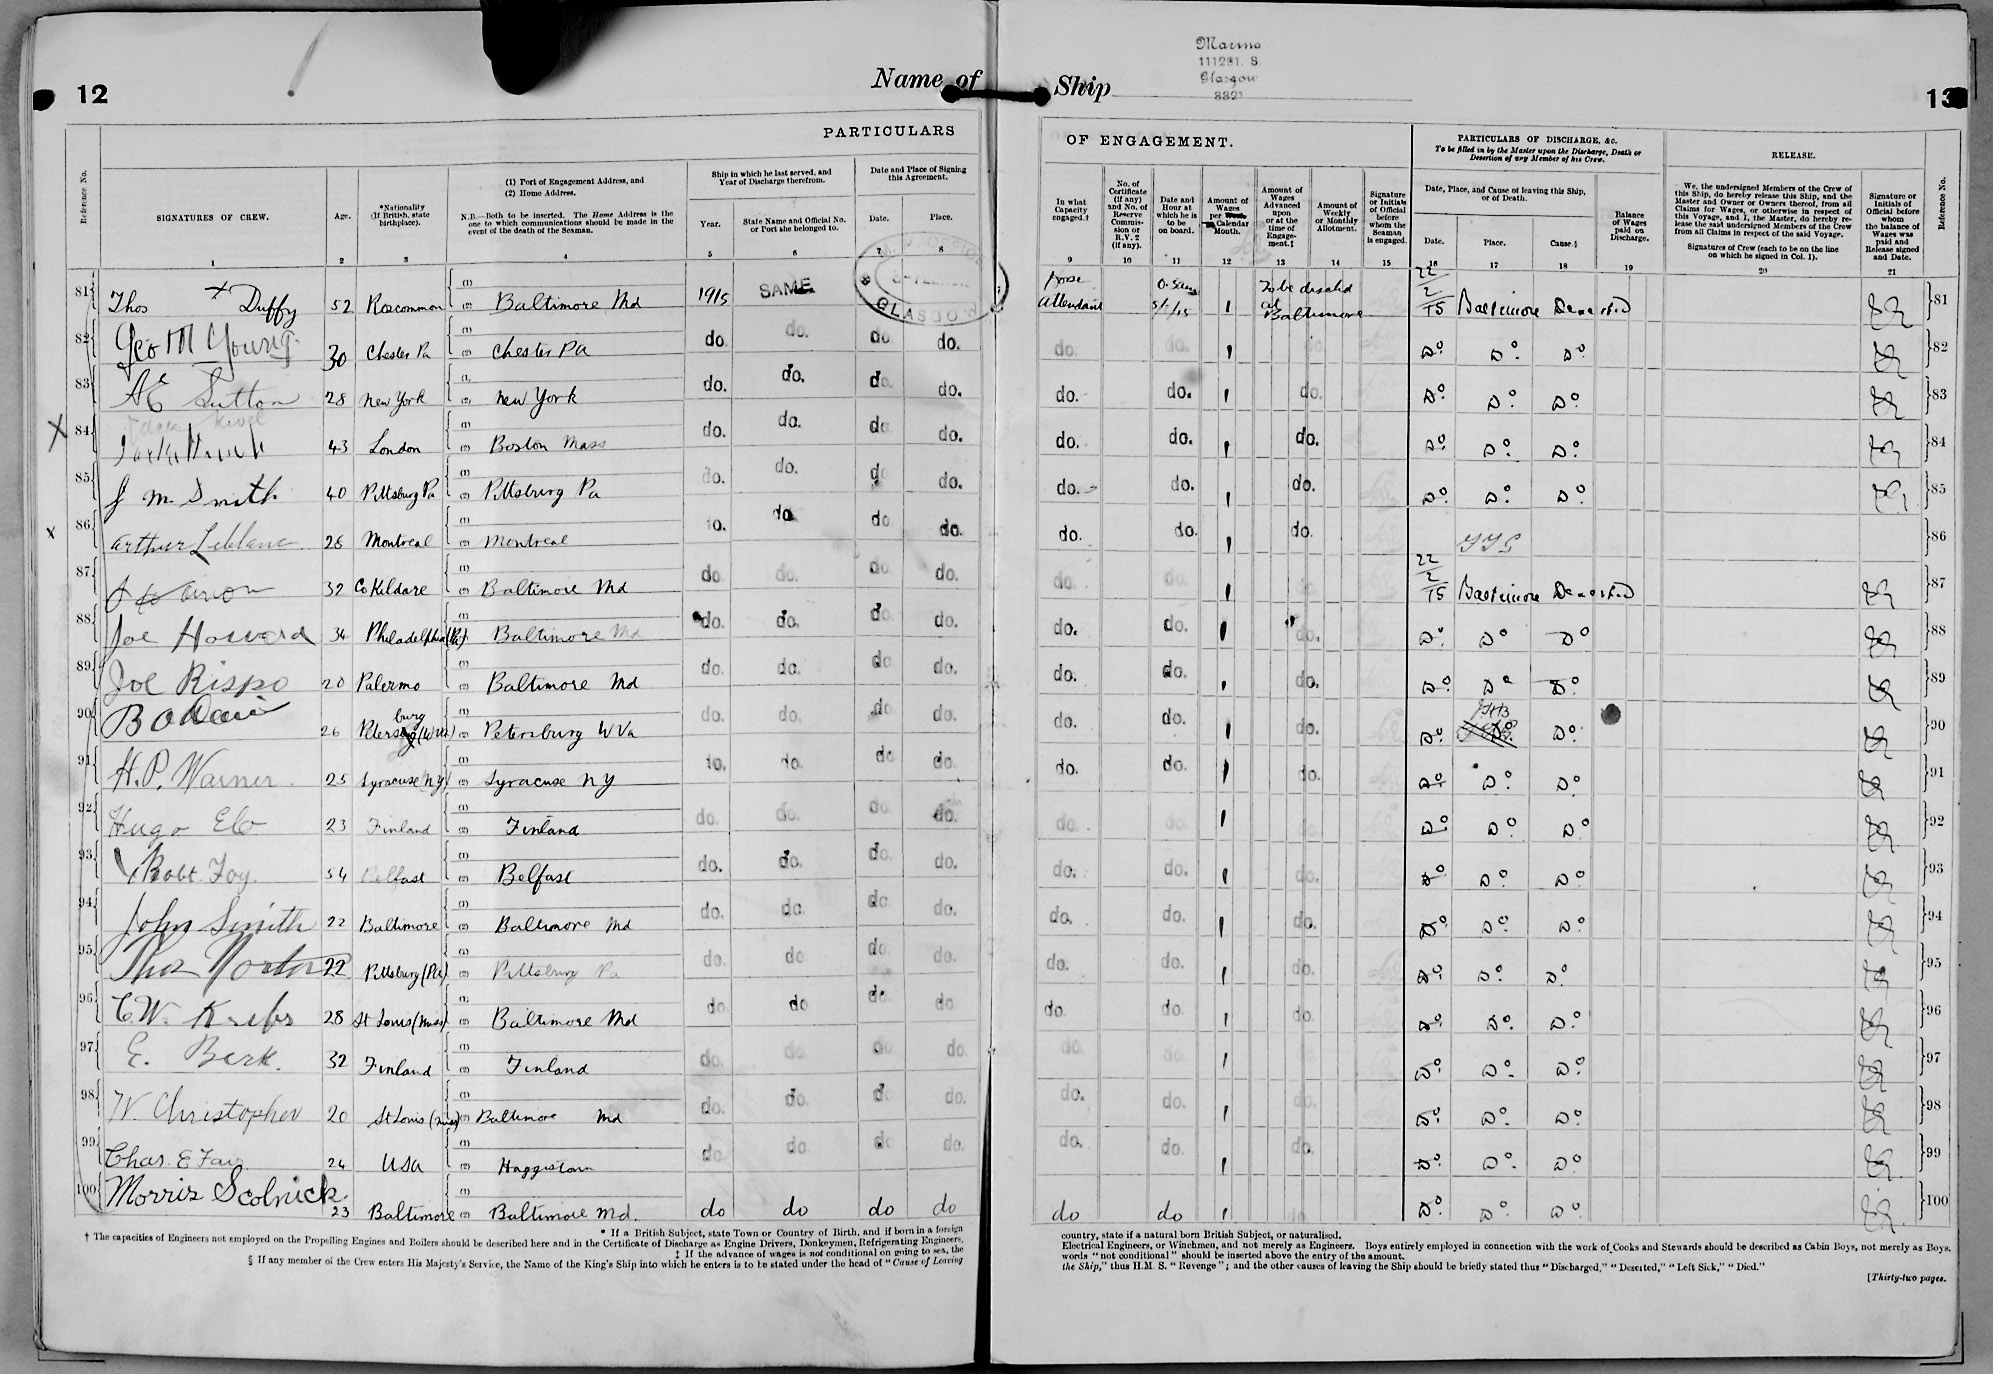 12
Name of Ship
Marina
111291. S
Glasgow
8321
13
PARTICULARS OF ENGAGEMENT.
PARTICULARS OF DISCHARGE, &c.
To be filled in by the Master upon the Discharge, Death or Desertion of any Member of his Crew.
RELEASE.
Reference No.
SIGNATURES OF CREW.
Age.
*Nationality (If British, state birthplace).
(1) Port of Engagement Address, and
(2) Home Address.
N.B.—Both to be inserted. The Home Address is the one to which communications should be made in the event of the death of the Seaman.
Ship in which he last served, and Year of Discharge therefrom.
Year.
State Name and Official No. or Port she belonged to.
Date and Place of Signing this Agreement.
Date.
Place.
In what Capacity engaged.†
No. of Certificate (if any) and No. of Reserve Commission or R.V. 2 (if any).
Date and Hour at which he is to be on board.
Amount of Wages per Calendar Month.
Amount of Wages Advanced upon or at the time of Engagement.‡
Amount of Weekly or Monthly Allotment.
Signature or Initials of Official before whom the Seaman is engaged.
Date, Place, and Cause of leaving this Ship, or of Death.
Date.
Place.
Cause.§
Balance of Wages paid on Discharge.
We, the undersigned Members of the Crew of this Ship, do hereby release this Ship, and the Master and Owner or Owners thereof, from all Claims for Wages, or otherwise in respect of this Voyage, and I, the Master, do hereby release the said undersigned Members of the Crew from all Claims in respect of the said Voyage.
Signatures of Crew (each to be on the line on which he signed in Col. 1).
Signature or Initials of Official before whom the balance of Wages was paid and Release signed and Date.
Reference No.
1 2 3 4 5 6 7 8 9 10 11 12 13 14 15 16 17 18 19 20 21
81 Thos X Duffy 52 Roscommon (1) (2) Baltimore Md 1915 SAME GLASGOW Horse Attendant 1 To be dischd at Baltimore 22/2/15 Baltimore Deserted 81
82 Geo M Young 30 Chester Pa (1) (2) Chester Pa do. do. do. do. do. do. 1 do. Do. Do. Do. 82
83 AE Sutton 28 New York (1) (2) New York do. do. do. do. do. do. 1 do. Do. Do. Do. 83
X 84 43 London (1) (2) Boston Mass do. do. do. do. do. do. 1 do. Do. Do. Do. 84
85 J M. Smith 40 Pittsburg Pa (1) (2) Pittsburg Pa do. do. do. do. do. do. 1 do. Do. Do. Do. 85
x 86 Arthur Leblanc 28 Montreal (1) (2) Montreal do. do. do. do. do. do. 1 do. 86
87 32 Co Kildare (1) (2) Baltimore Md do. do. do. do. do. do. 1 22/2/15 Baltimore Deserted 87
88 Joe Howard 34 Philadelphia (Pa) (1) (2) Baltimore Md do. do. do. do. do. do. 1 do. Do. Do. Do. 88
89 Joe Rispo 20 Palermo (1) (2) Baltimore Md do. do. do. do. do. do. 1 do. Do. Do. Do. 89
90 26 Petersburg (W Va) (1) (2) Petersburg W Va do. do. do. do. do. do. 1 do. Do. Do. 90
91 H.P. Warner 25 Syracuse NY (1) (2) Syracuse NY do. do. do. do. do. do. 1 do. Do. Do. Do. 91
92 Hugo Elo 23 Finland (1) (2) Finland do. do. do. do. do. do. 1 do. Do. Do. Do. 92
93 Robt. Foy 54 Belfast (1) (2) Belfast do. do. do. do. do. do. 1 do. Do. Do. Do. 93
94 John Smith 22 Baltimore (1) (2) Baltimore Md do. do. do. do. do. do. 1 do. Do. Do. Do. 94
95 Thos Norton 22 Pittsburg (Pa) (1) (2) Pittsburg Pa do. do. do. do. do. do. 1 do. Do. Do. Do. 95
96 C.W. Krebs 28 St Louis (Miss) (1) (2) Baltimore Md do. do. do. do. do. do. 1 do. Do. Do. Do. 96
97 E. Berk. 32 Finland (1) (2) Finland do. do. do. do. do. do. 1 do. Do. Do. Do. 97
98 W. Christopher 20 St Louis (Miss) (1) (2) Baltimore Md do. do. do. do. do. do. 1 do. Do. Do. Do. 98
99 Chas. E Fair 24 USA (1) (2) Haggistown do. do. do. do. do. do. 1 do. Do. Do. Do. 99
100 Morris Scolnick. 23 Baltimore (1) (2) Baltimore Md. do do do do do do 1 do Do. Do. Do. 100
* If a British Subject, state Town or Country of Birth, and if born in a foreign country, state if a natural born British Subject, or naturalised.
† The capacities of Engineers not employed on the Propelling Engines and Boilers should be described here and in the Certificate of Discharge as Engine Drivers, Donkeymen, Refrigerating Engineers, Electrical Engineers, or Winchmen, and not merely as Engineers. Boys entirely employed in connection with the work of Cooks and Stewards should be described as Cabin Boys, not merely as Boys.
‡ If the advance of wages is not conditional on going to sea, the words "not conditional" should be inserted above the entry of the amount.
§ If any member of the Crew enters His Majesty's Service, the Name of the King's Ship into which he enters is to be stated under the head of "Cause of Leaving the Ship," thus H.M. S. "Revenge"; and the other causes of leaving the Ship should be briefly stated thus "Discharged," "Deserted," "Left Sick," "Died."
[Thirty-two pages.